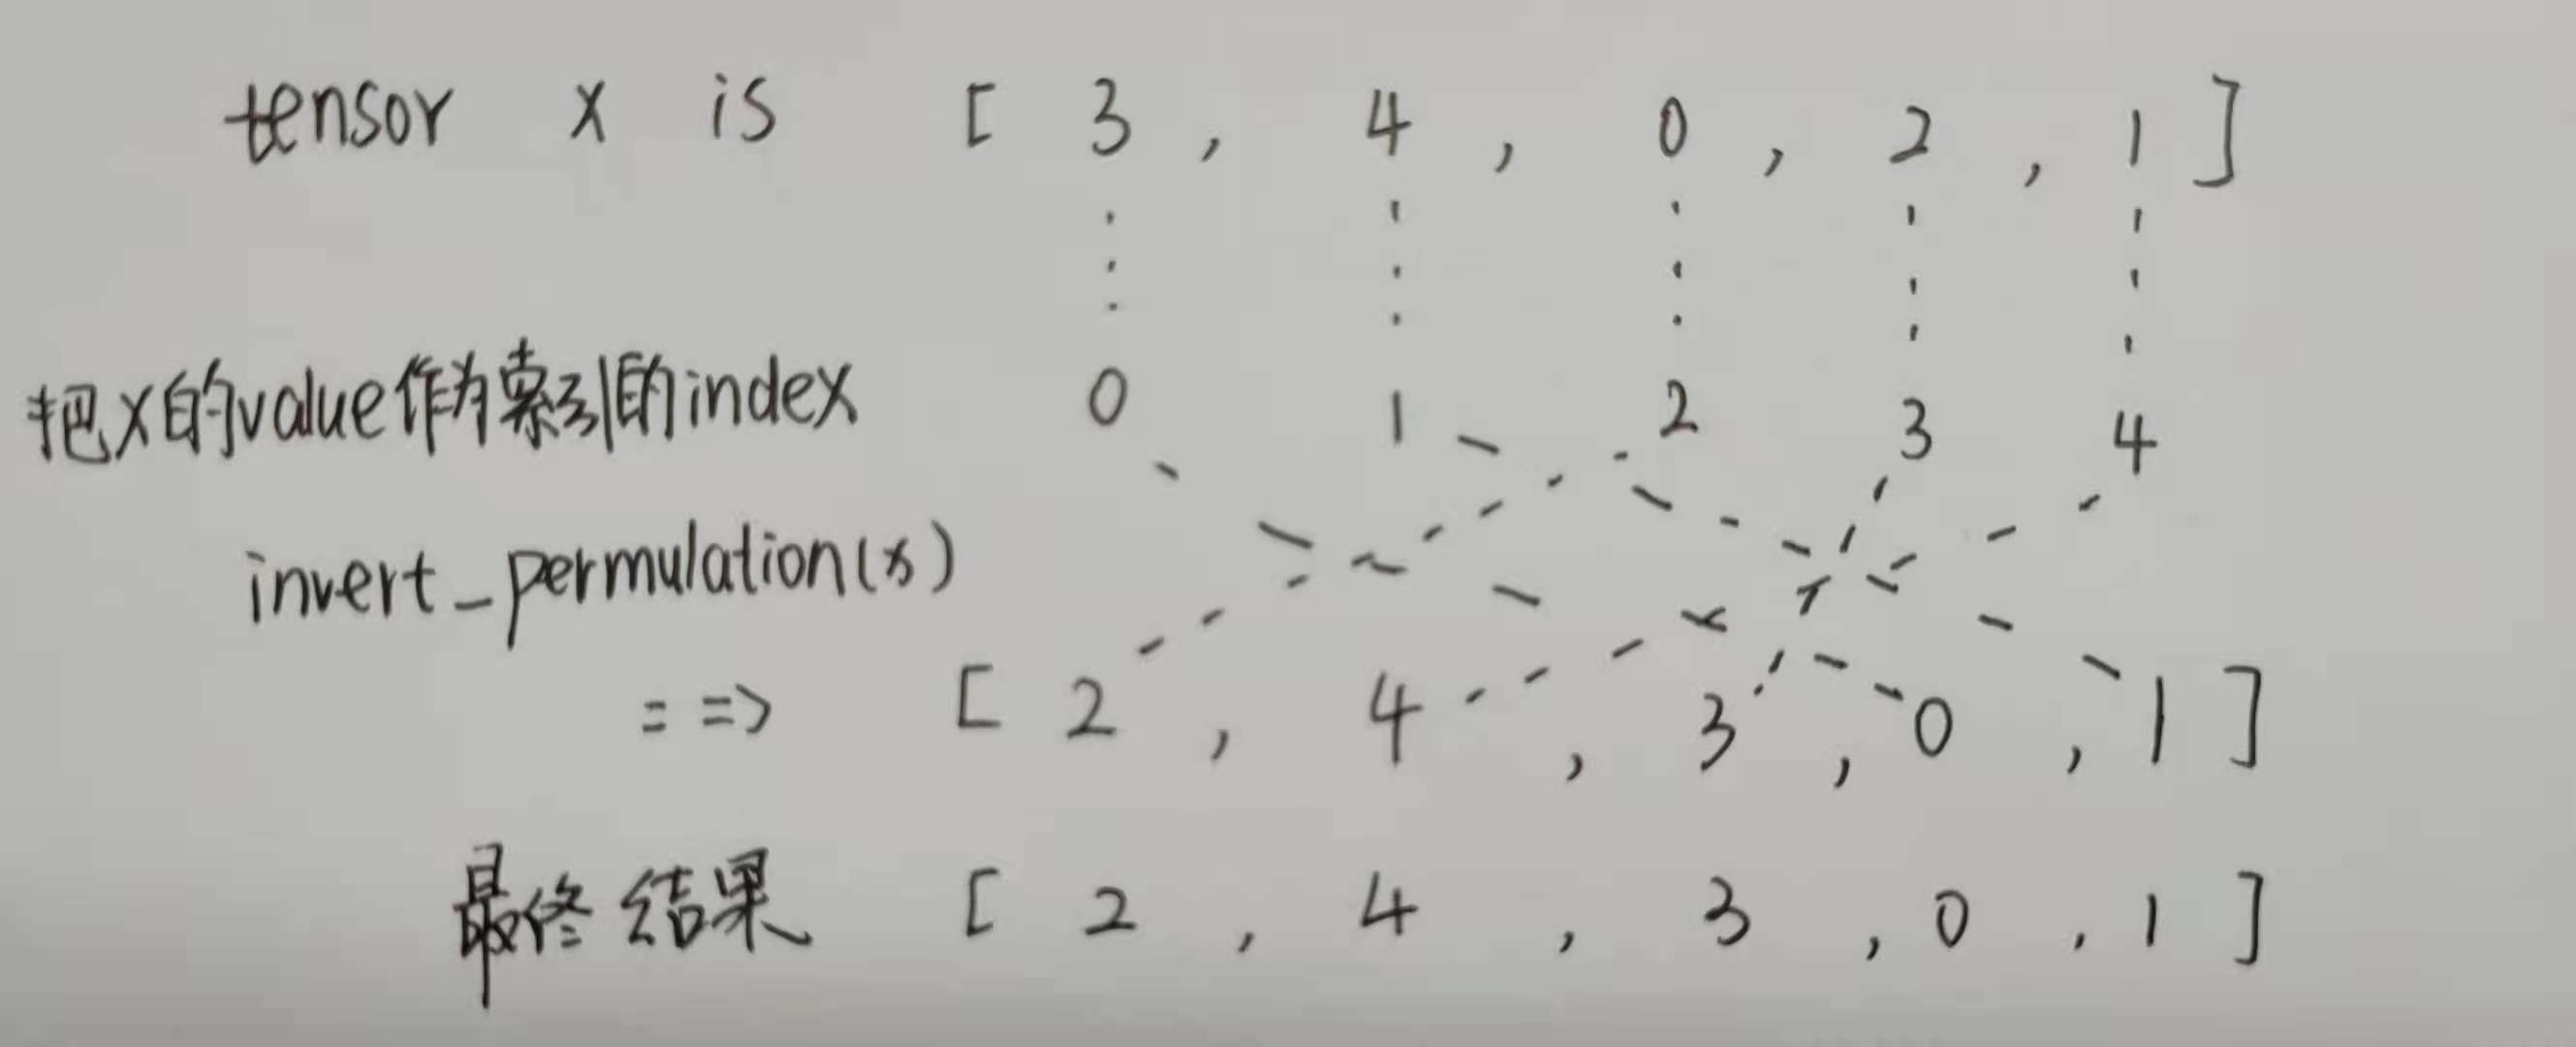 tensor x is [ 3 , 4 , 0 , 2 , 1 ]
把x的value作为索引的index 0 1 2 3 4
invert_permulation(x)
= => [ 2 , 4 , 3 , 0 , 1 ]
最终结果 [ 2 , 4 , 3 , 0 , 1 ]